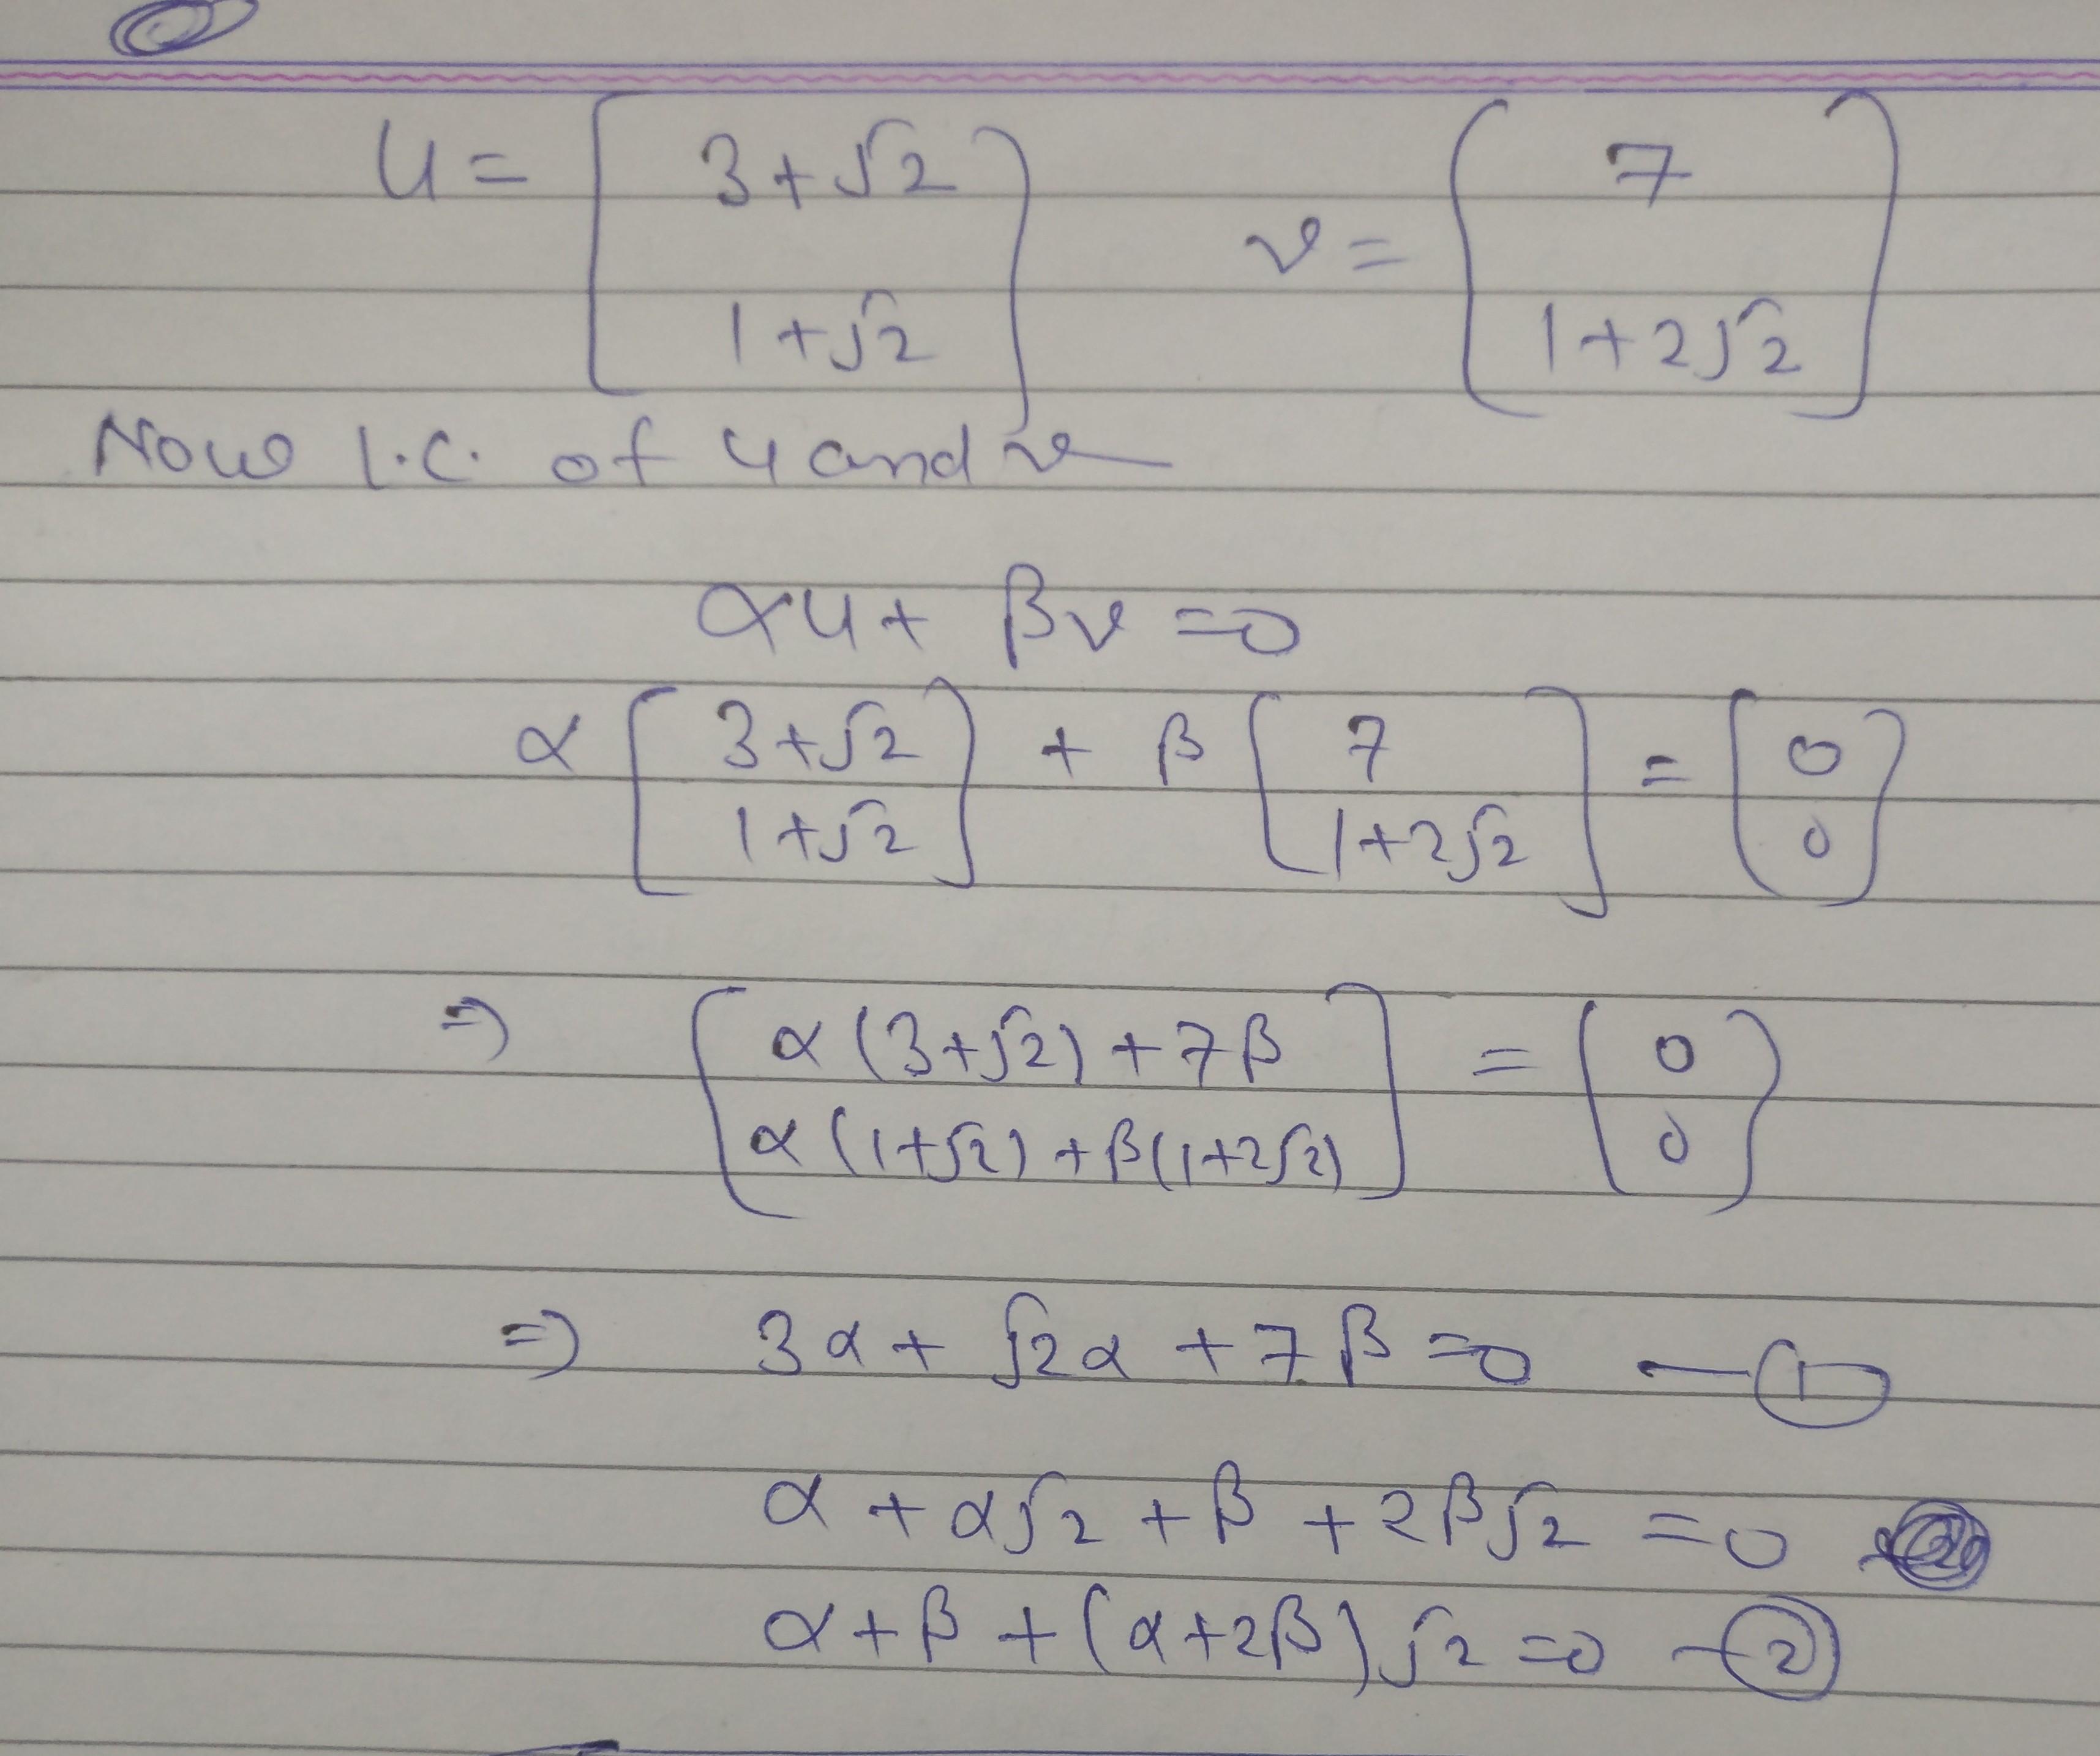 u = [ 3+√2
1+√2 ]
v = [ 7
1+2√2 ]
Now l.c. of u and v
αu + βv = 0
α [ 3+√2
1+√2 ] + β [ 7
1+2√2 ] = [ 0
0 ]
⇒ [ α(3+√2) + 7β
α(1+√2) + β(1+2√2) ] = [ 0
0 ]
⇒ 3α + √2α + 7β = 0 — ①
α + α√2 + β + 2β√2 = 0
α + β + (α+2β)√2 = 0 — ②